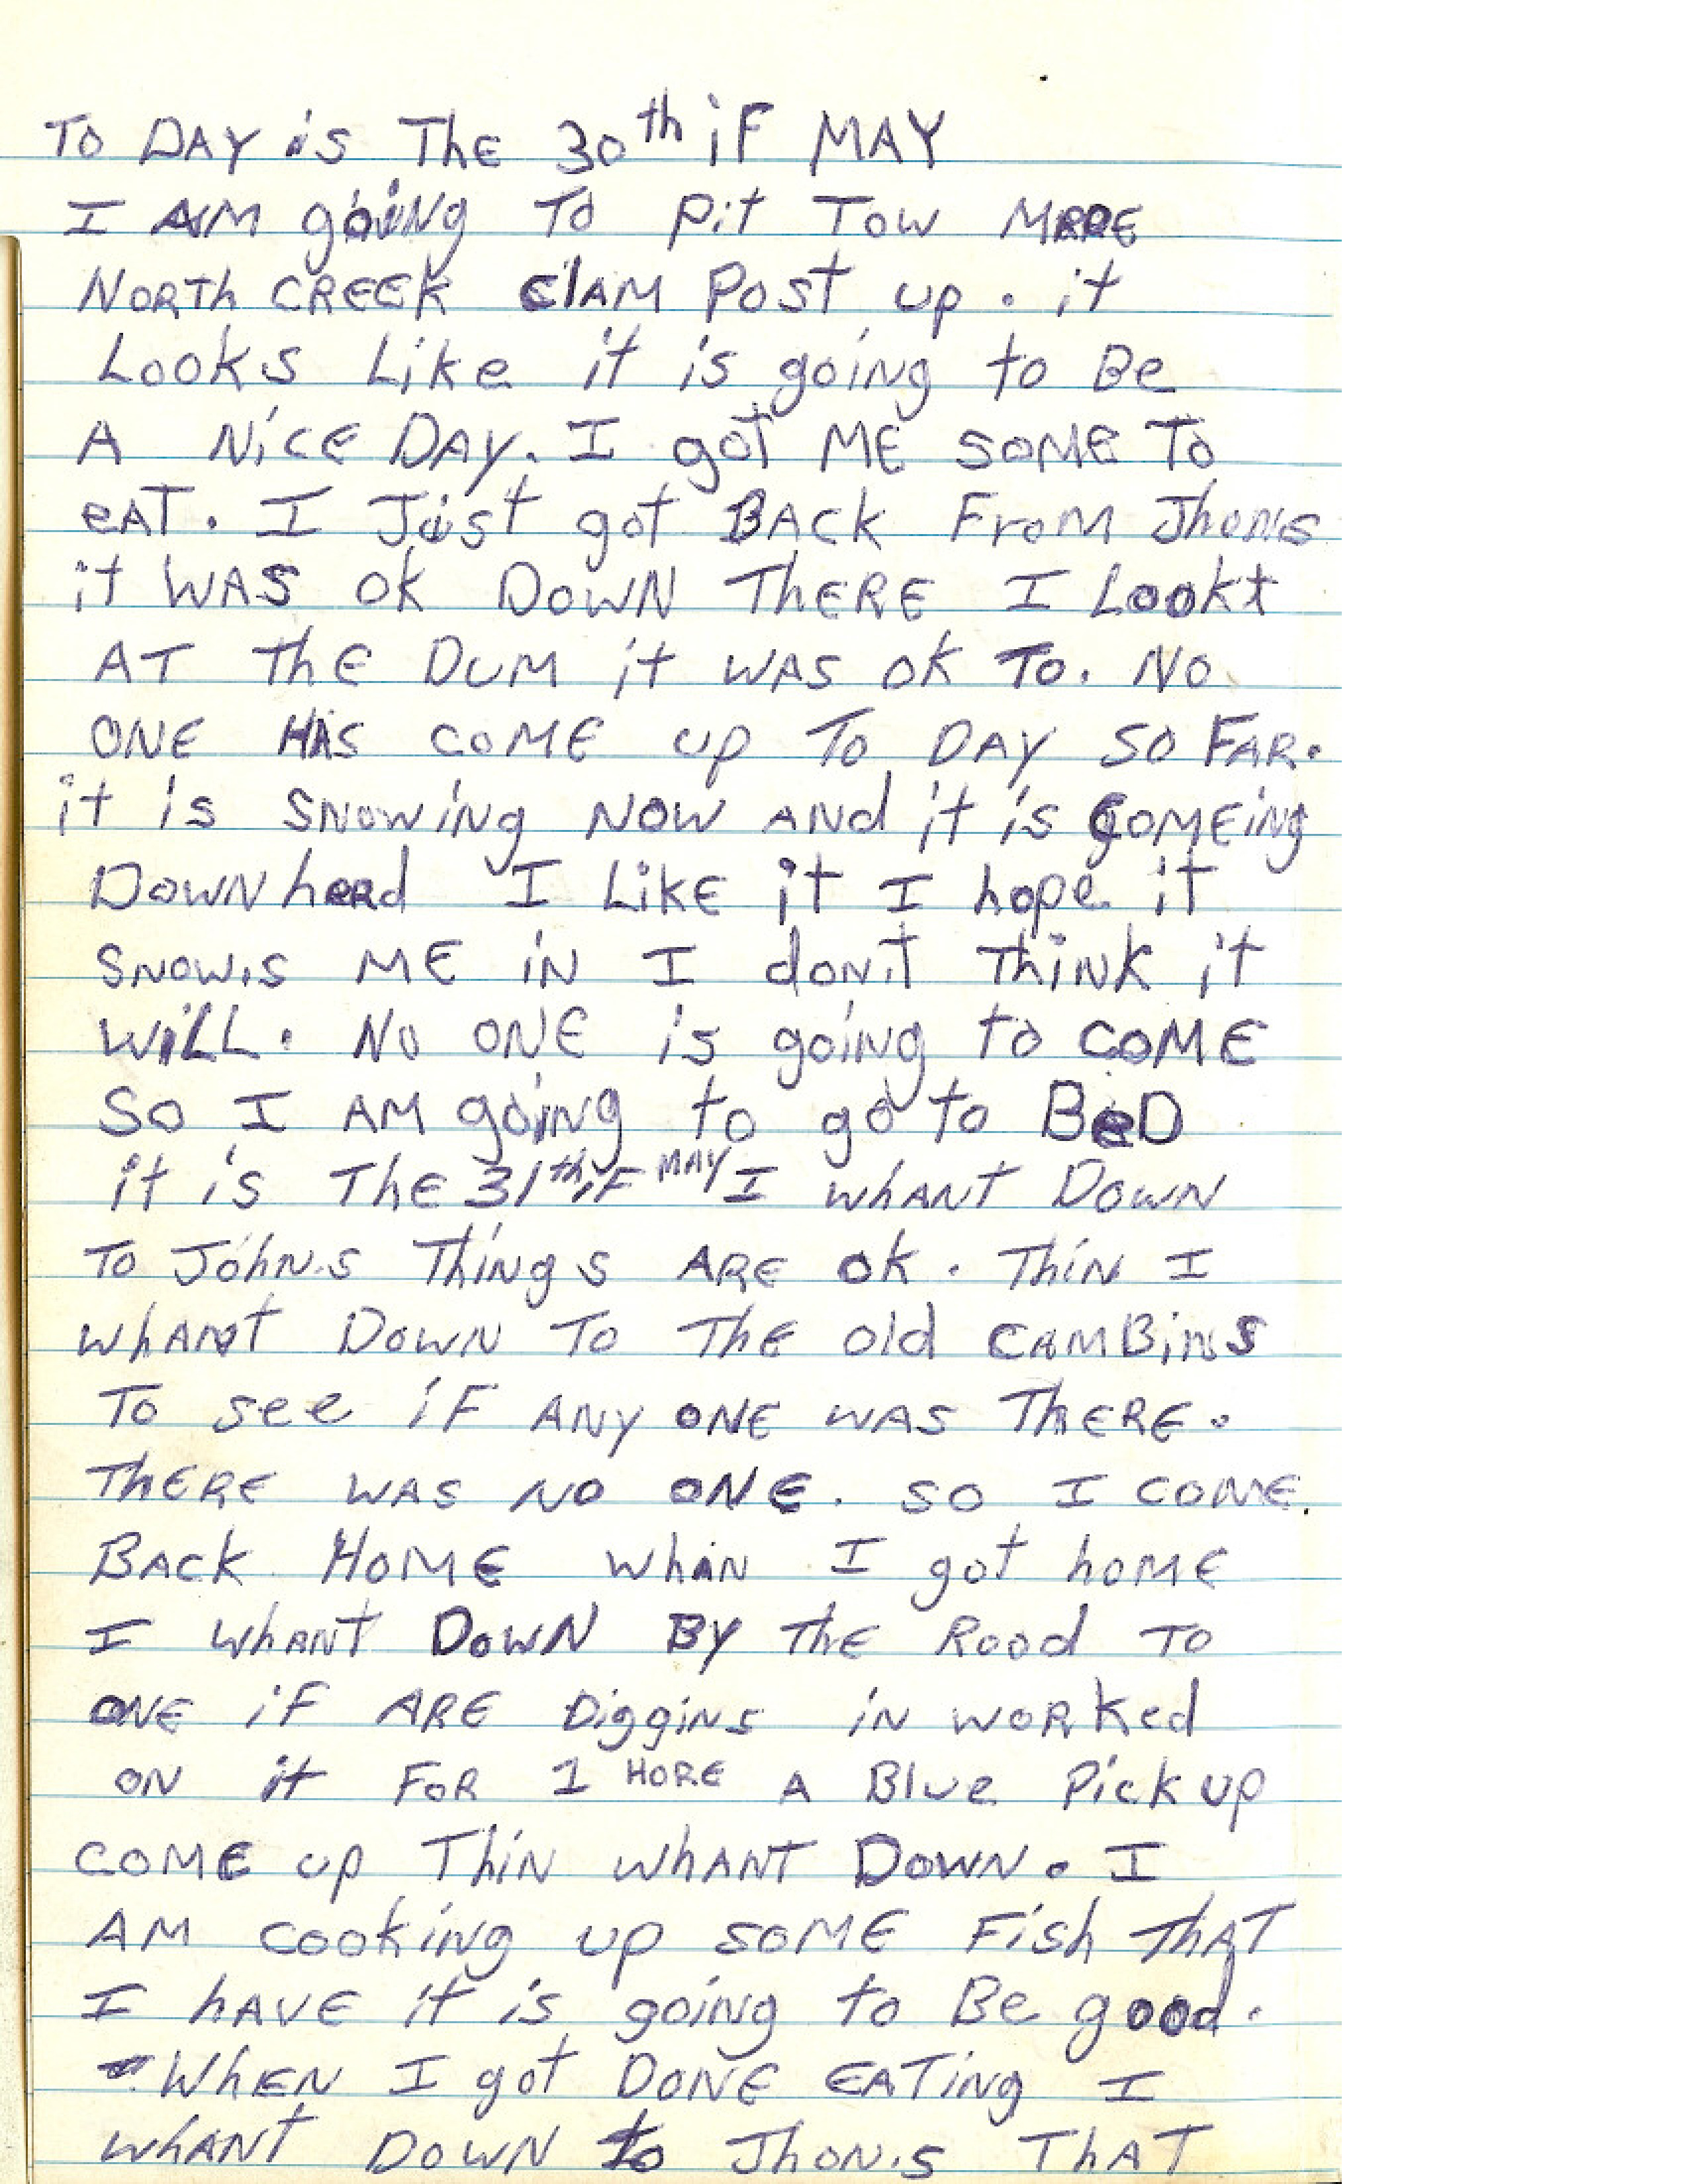 TO DAY is The 30th iF MAY
I AM goiNg To Pit Tow MRRE
NORTh CREEk ClAM Post up. it
Looks Like it is goiNg to Be
A NicE DAY. I got ME SoME To
eAT. I Just got BAck From Jhons
it WAS ok DowN ThERE I Lookt
AT ThE DUM it wAS ok To. No
ONE HAS coME up To DAY SO FAR.
it is SNowiNg Now ANd it is comEiNg
DowN heard I LikE it I hope it
SNow.s ME iN I doN.T ThiNk it
WiLL. No ONE is goiNg to coME
So I AM goiNg to go to BeD
it is ThE 31th iF MAY I whANT DowN
To JohN.s ThiNgs ARE ok. ThiN I
whANT DowN To ThE old CAMBiNs
To see iF ANy ONE wAS ThERE.
ThERE wAs No ONE. so I coME
BAck HoME whiN I got hoME
I whANT DowN By ThE Road To
ONE iF ARE DiggiNs iN woRked
oN it FoR 1 HoRE A Blue Pick up
coME up ThiN whANT DowN. I
AM cookiNg up soME Fish ThAT
I hAVE it is goiNg to Be good.
WhEN I got DoNE EATiNg I
whANT DowN to JhoN.s ThAT